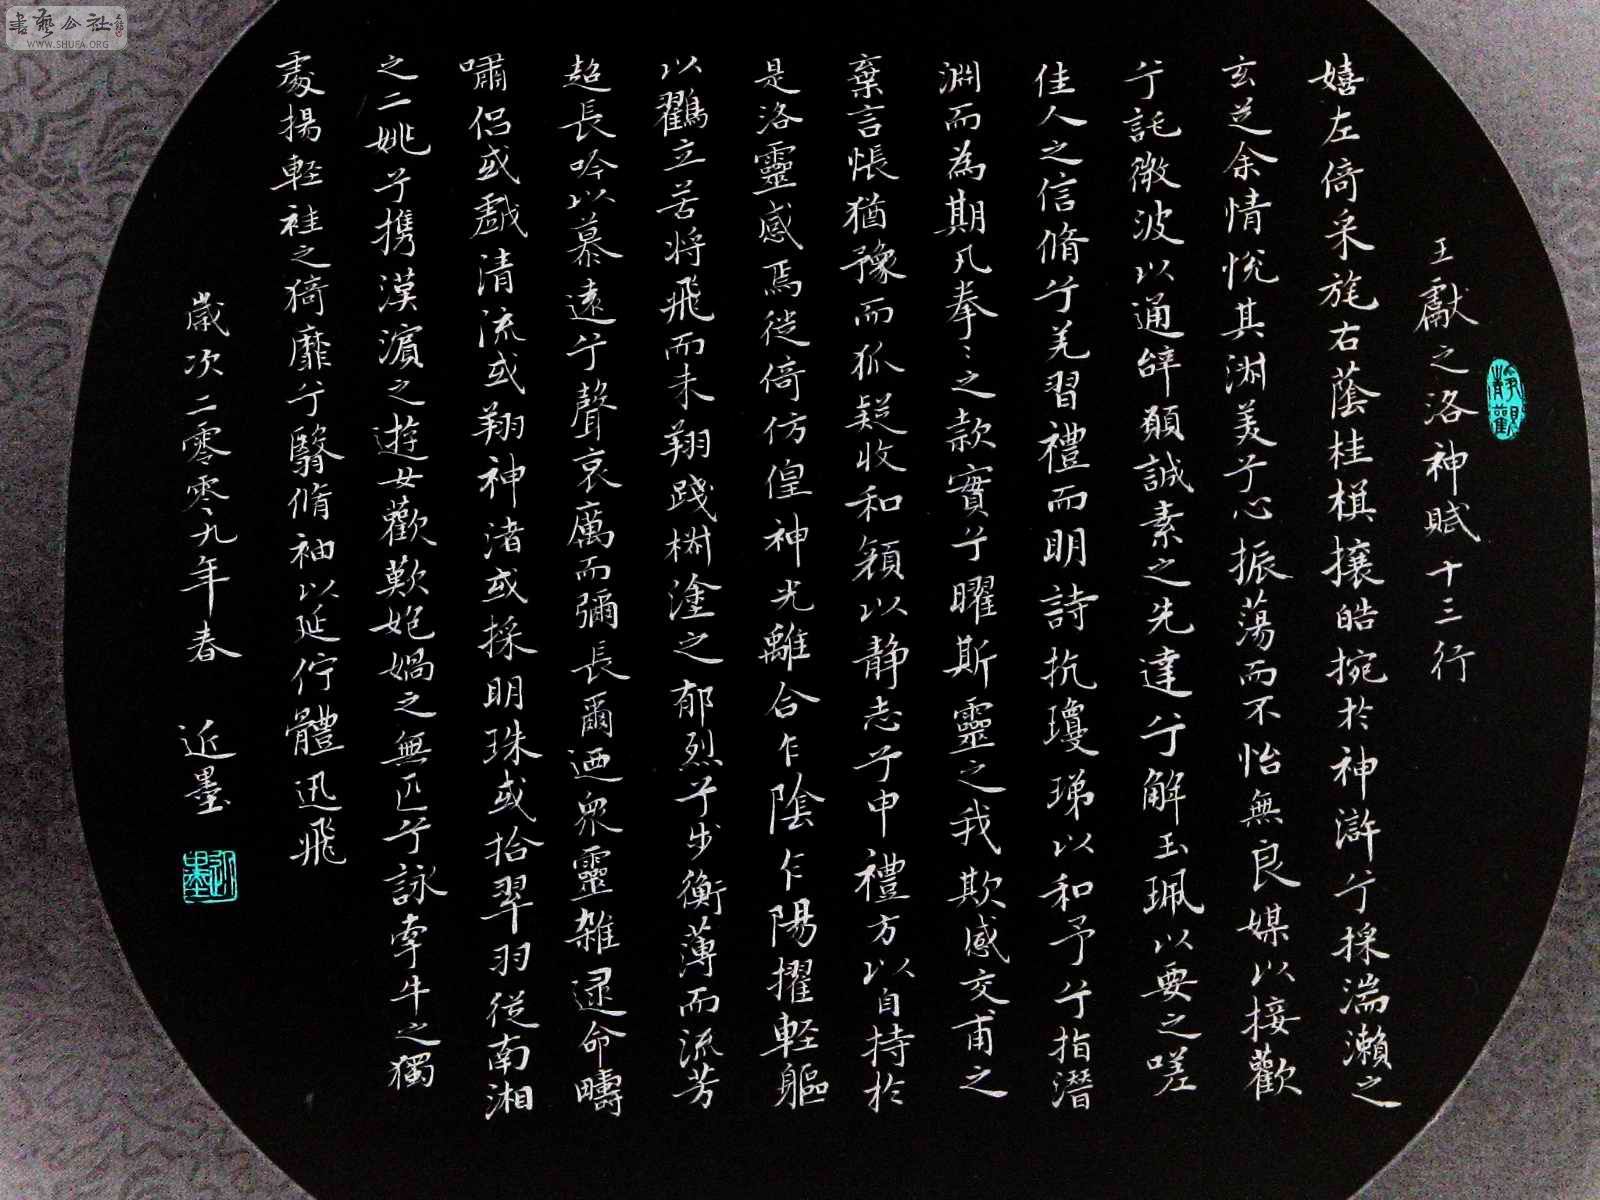 書藝公社
WWW.SHUFA.ORG
靜觀
王獻之洛神賦十三行
嬉左倚采旄右蔭桂棋攘皓捥於神滸兮採湍瀨之
玄芝余情悅其淑美兮心振蕩而不怡無良媒以接歡
兮託微波以通辭願誠素之先達兮解玉珮以要之嗟
佳人之信脩兮羌習禮而明詩抗瓊珶以和予兮指潛
淵而為期執拳〻之款實兮曜斯靈之我欺感交甫之
棄言悵猶豫而狐疑收和顏以靜志兮申禮方以自持於
是洛靈感焉徙倚仿偟神光離合乍陰乍陽擢輕軀
以鸛立若將飛而未翔踐椒塗之郁烈兮步衡薄而流芳
超長吟以慕遠兮聲哀厲而彌長爾迺衆靈雜遝命疇
嘯侶或戲清流或翔神渚或採明珠或拾翠羽從南湘
之二姚兮攜漢濱之遊女歡歎匏媧之無匹兮詠牽牛之獨
處揚輕袿之猗靡兮翳脩袖以延佇體迅飛
歲次二零零九年春 近墨
近墨